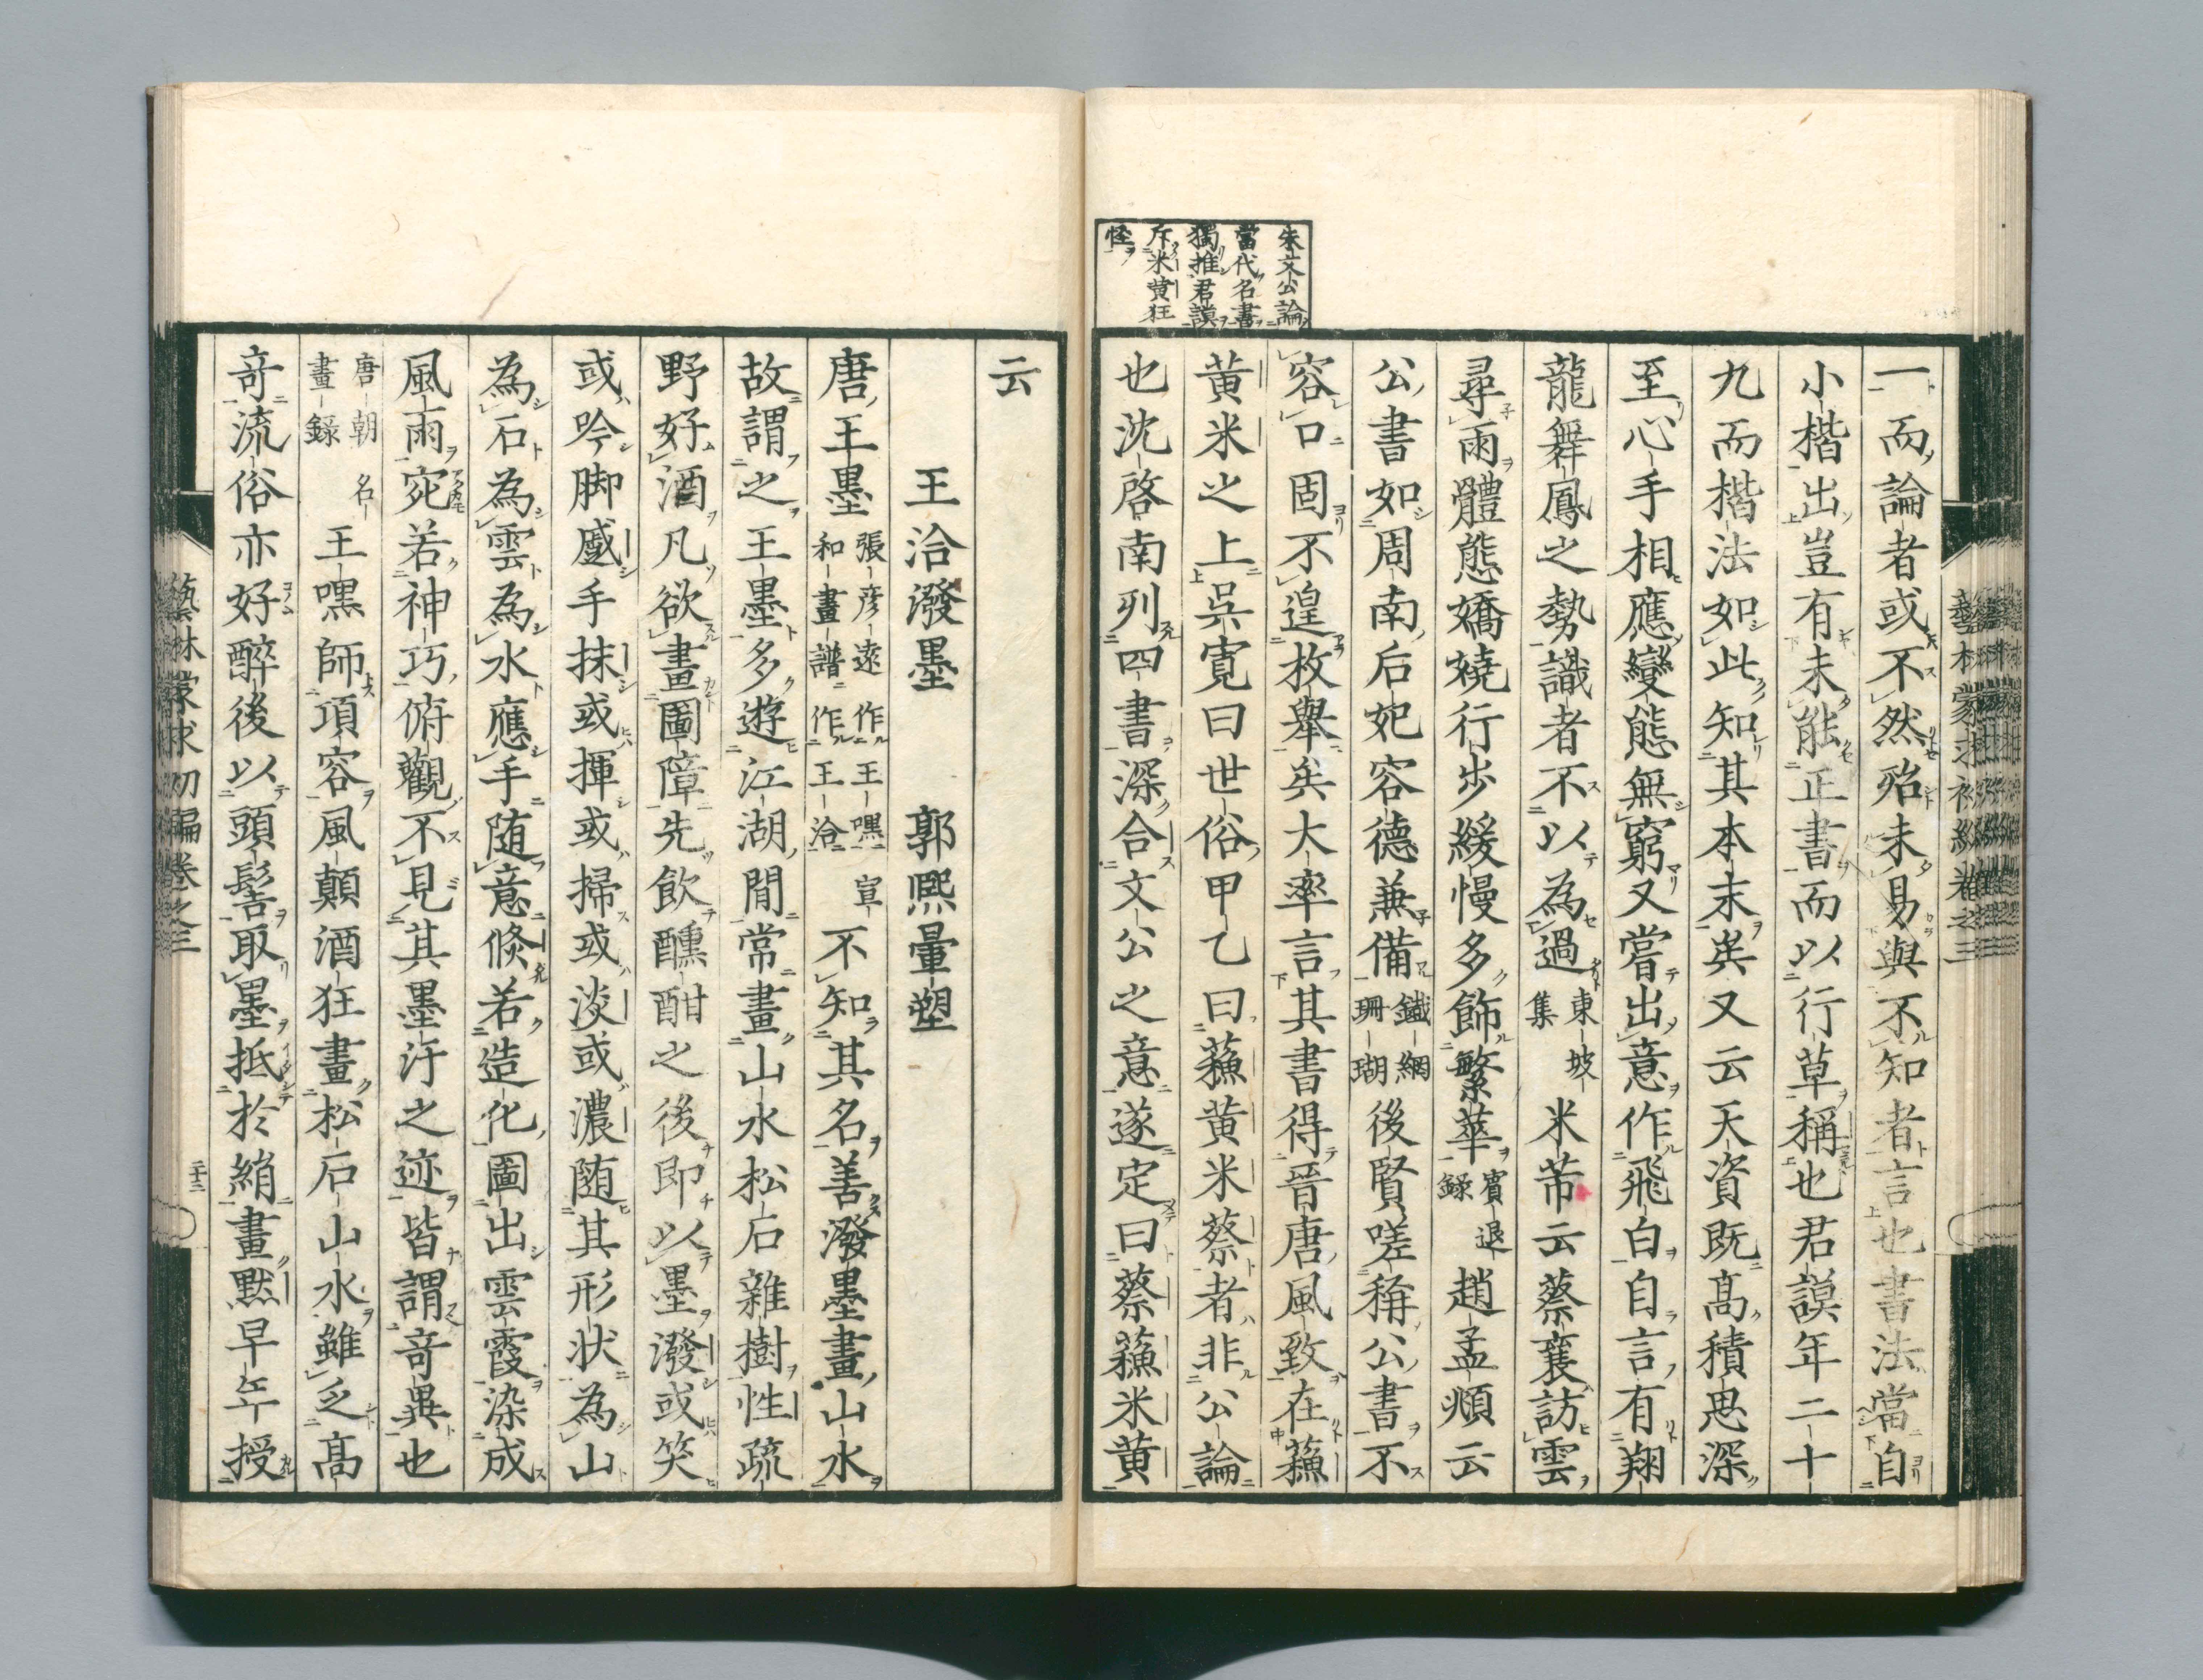 朱文公論
當代名書
獨推君謨
斥米黄狂
怪
一而論者或不然殆未易與不知者言也書法當自
小楷出豈有未能正書而以行草稱也君謨年二十
九而楷法如此知其本末矣又云天資既髙積思深
至心手相應變態無窮又嘗出意作飛白自言有翔
龍舞鳳之勢識者不以為過東坡集米芾云蔡襄訪雲
尋雨體態嬌嬈行步緩慢多飾繁華賓退錄趙孟頫云
公書如周南后妃容德兼備鐵網珊瑚後賢嗟稱公書不
容口固不遑枚舉矣大率言其書得晉唐風致在蘓
黄米之上吳寬曰世俗甲乙曰蘓黄米蔡者非公論
也沈啓南列四書深合文公之意遂定曰蔡蘓米黄
云
王洽潑墨　郭熈暈塑
唐王墨張彦遠作王嘿宣和畫譜作王洽不知其名善潑墨畫山水
故謂之王墨多遊江湖間常畫山水松石雜樹性疏
野好酒凡欲畫圖障先飲醺酣之後即以墨潑或笑
或吟脚蹙手抹或揮或掃或淡或濃随其形状為山
為石為雲為水應手随意倐若造化圖出雲霞染成
風雨宛若神巧俯觀不見其墨汙之迹皆謂竒異也
唐朝名畫錄王嘿師項容風顛酒狂畫松石山水雖乏髙
竒流俗亦好醉後以頭髻取墨抵於絹畫黙早年授
藝林蒙求初編卷之三
二十二